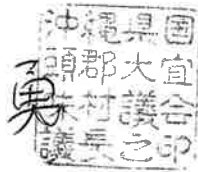 勇
沖縄県国
頭郡大宜
味村議会
議長之印